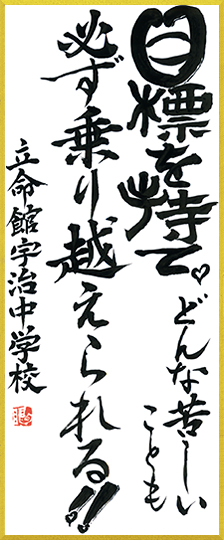 目標を持て。
どんな苦しい
ことも
必ず乗り越えられる!!
立命館宇治中学校